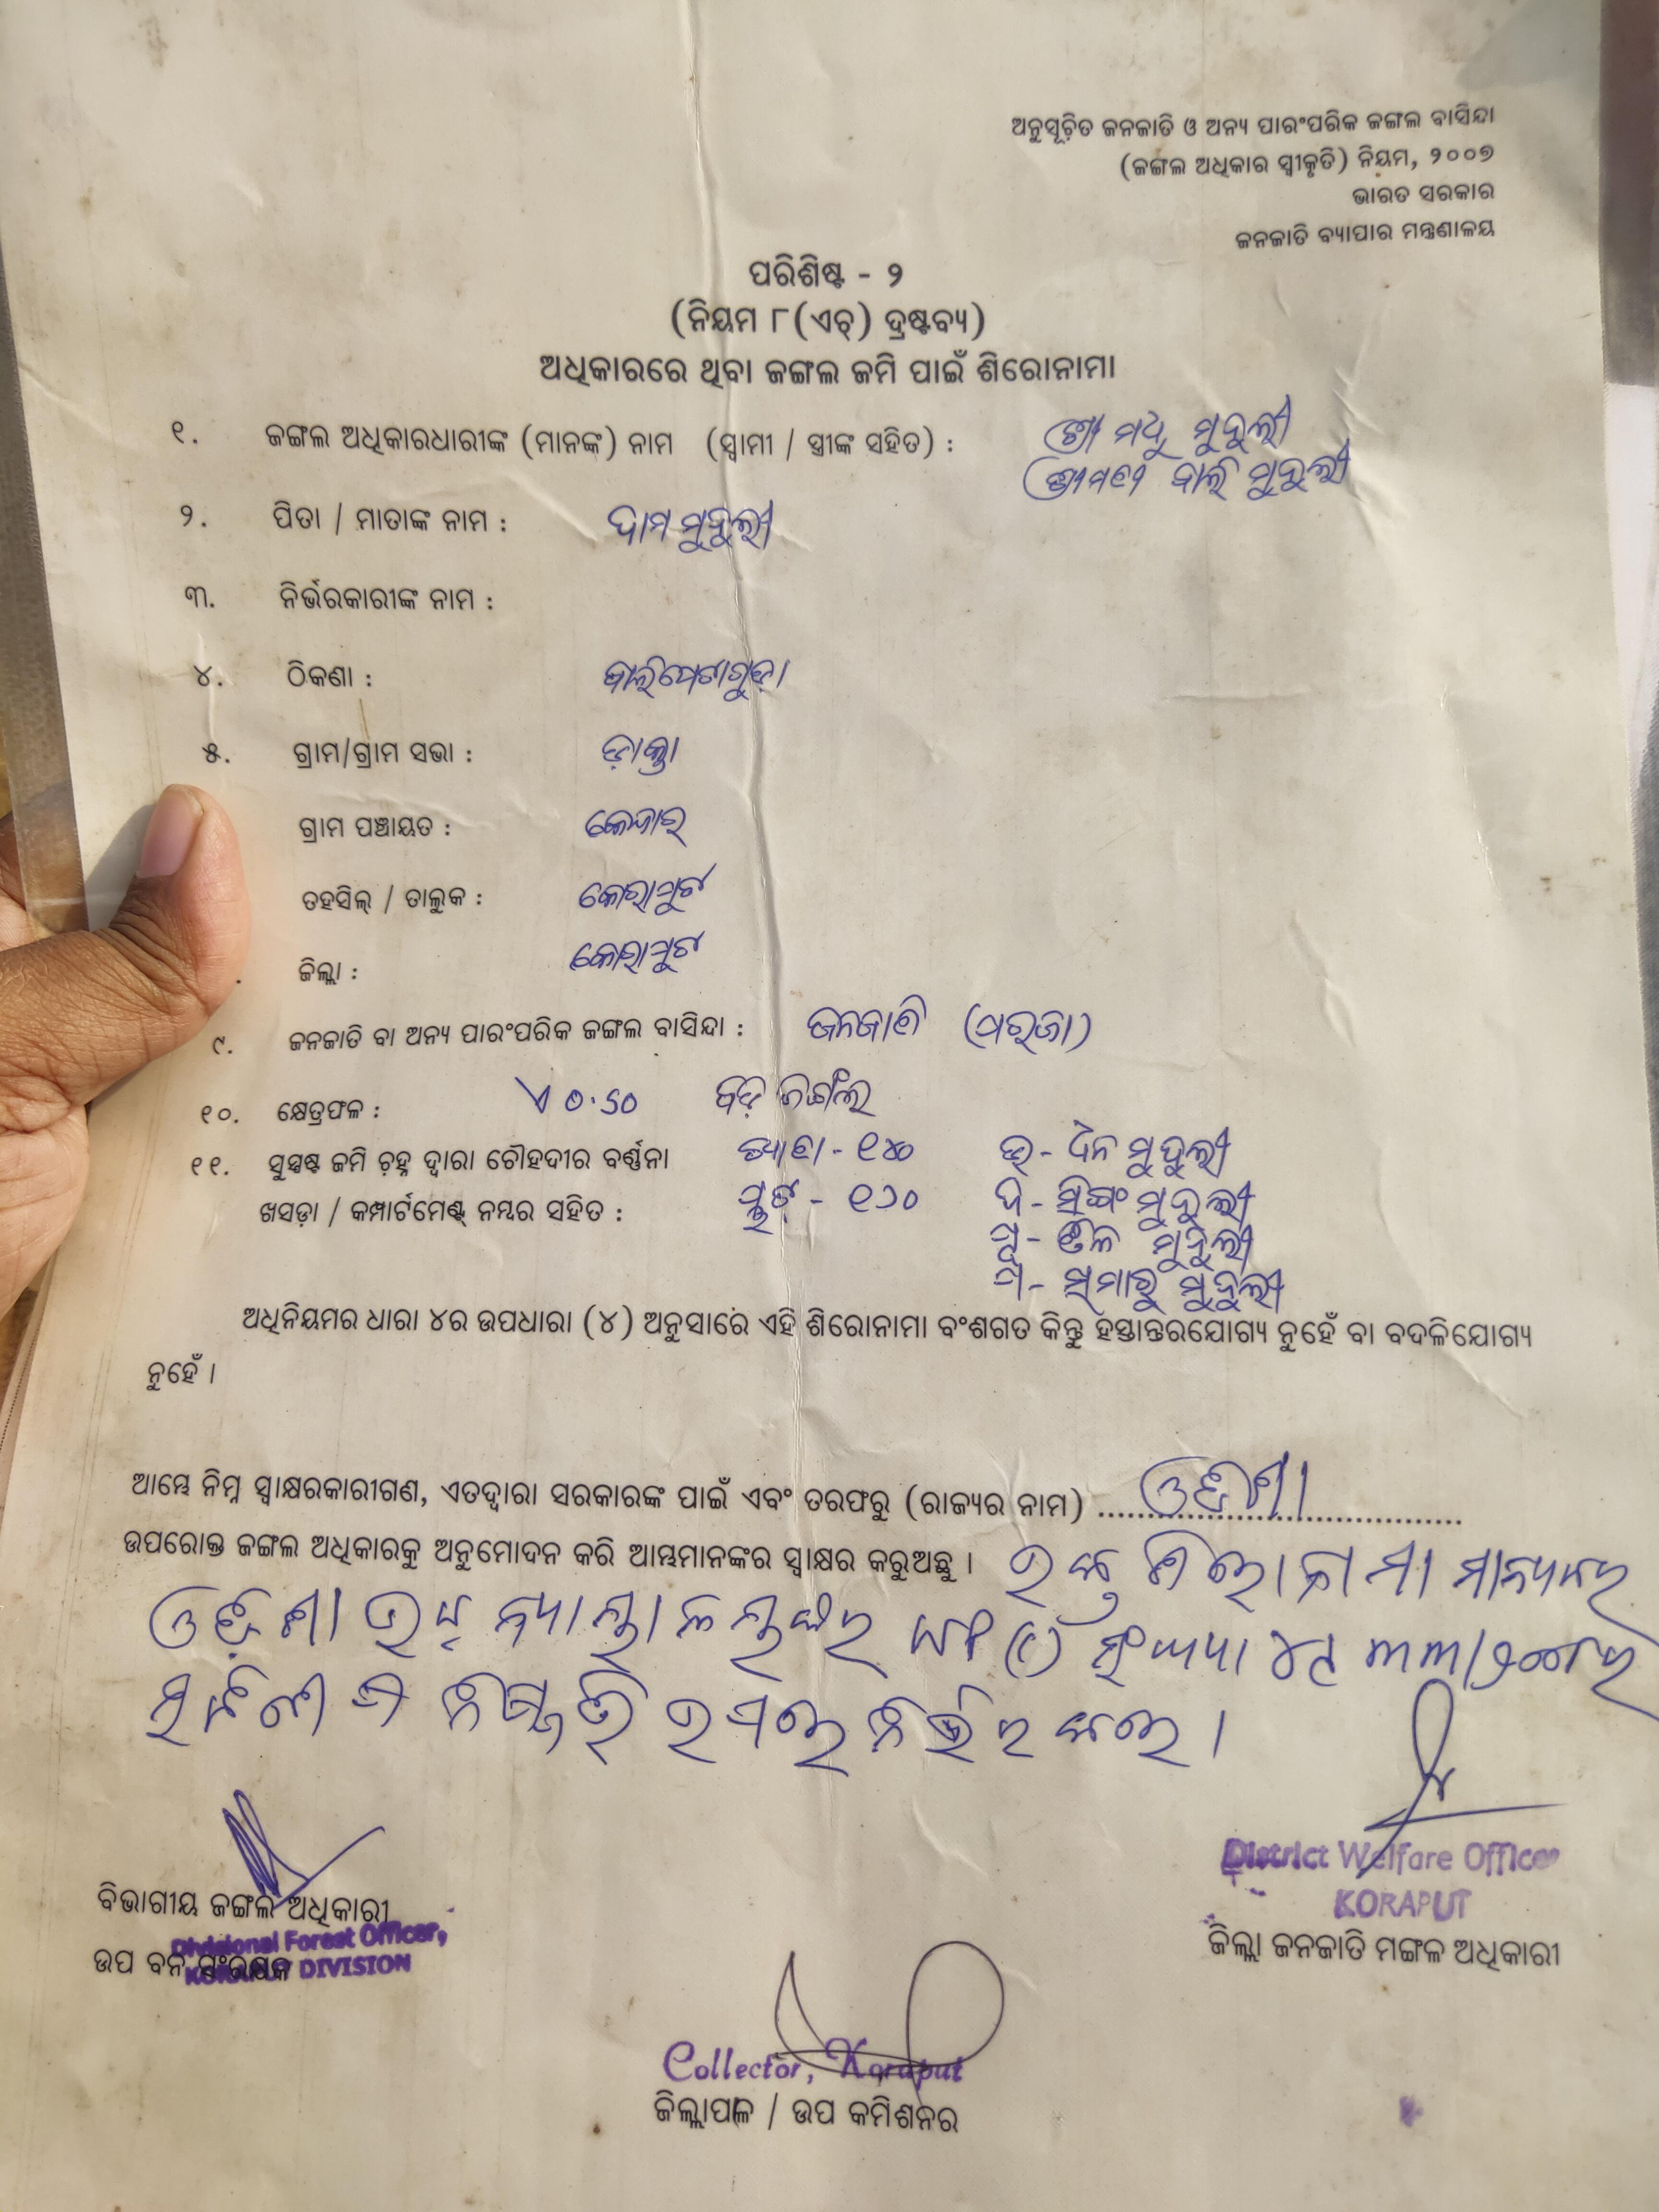 ଅନୁସୂଚିତ ଜନଜାତି ଓ ଅନ୍ୟ ପାରଂପରିକ ଜଙ୍ଗଲ ବାସିନ୍ଦା
(ଜଙ୍ଗଲ ଅଧିକାର ସ୍ୱୀକୃତି) ନିୟମ, ୨୦୦୭
ଭାରତ ସରକାର
ଜନଜାତି ବ୍ୟାପାର ମନ୍ତ୍ରଣାଳୟ
ପରିଶିଷ୍ଟ - ୨
(ନିୟମ ୮(ଏଚ୍) ଦ୍ରଷ୍ଟବ୍ୟ)
ଅଧିକାରରେ ଥିବା ଜଙ୍ଗଲ ଜମି ପାଇଁ ଶିରୋନାମା
୧. ଜଙ୍ଗଲ ଅଧିକାରଧାରୀଙ୍କ (ମାନଙ୍କ) ନାମ (ସ୍ୱାମୀ / ସ୍ତ୍ରୀଙ୍କ ସହିତ) : ଶ୍ରୀ ମଧୁ ମୁଦୁଲୀ
ଶ୍ରୀମତୀ ବାଲି ମୁଦୁଲୀ
୨. ପିତା / ମାତାଙ୍କ ନାମ : ଦାମ ମୁଦୁଲୀ
୩. ନିର୍ଭରକାରୀଙ୍କ ନାମ :
୪. ଠିକଣା : ବାଲିପେଟାଗୁଡ଼ା
୫. ଗ୍ରାମ/ଗ୍ରାମ ସଭା :
ଗ୍ରାମ ପଞ୍ଚାୟତ : କେନ୍ଦାର
ତହସିଲ୍ / ତାଲୁକ : କୋରାପୁଟ
ଜିଲ୍ଲା : କୋରାପୁଟ
୯. ଜନଜାତି ବା ଅନ୍ୟ ପାରଂପରିକ ଜଙ୍ଗଲ ବାସିନ୍ଦା : ଜନଜାତି (ପରଜା)
୧୦. କ୍ଷେତ୍ରଫଳ : ଏ ୦.50 ବଡ଼ ଜଙ୍ଗଲ
୧୧. ସୁସ୍ପଷ୍ଟ ଜମି ଚିହ୍ନ ଦ୍ୱାରା ଚୌହଦୀର ବର୍ଣ୍ଣନା ଖାତା - ୧୪୦ ଉ - ଧନ ମୁଦୁଲୀ
ଖସଡ଼ା / କମ୍ପାର୍ଟମେଣ୍ଟ୍ ନମ୍ବର ସହିତ : ପ୍ଲଟ୍ - ୧୬୦ ଦ - ସିଙ୍ଗଂ ମୁଦୁଲୀ
ପୂ - ତିଳ ମୁଦୁଲୀ
ପ - ସମାରୁ ମୁଦୁଲୀ
ଅଧିନିୟମର ଧାରା ୪ର ଉପଧାରା (୪) ଅନୁସାରେ ଏହି ଶିରୋନାମା ବଂଶଗତ କିନ୍ତୁ ହସ୍ତାନ୍ତରଯୋଗ୍ୟ ନୁହେଁ ବା ବଦଳିଯୋଗ୍ୟ
ନୁହେଁ ।
ଆମ୍ଭେ ନିମ୍ନ ସ୍ୱାକ୍ଷରକାରୀଗଣ, ଏତଦ୍ୱାରା ସରକାରଙ୍କ ପାଇଁ ଏବଂ ତରଫରୁ (ରାଜ୍ୟର ନାମ) ..... ଓଡ଼ିଶା
ଉପରୋକ୍ତ ଜଙ୍ଗଲ ଅଧିକାରକୁ ଅନୁମୋଦନ କରି ଆମ୍ଭମାନଙ୍କର ସ୍ୱାକ୍ଷର କରୁଅଛୁ । ଉକ୍ତ ଶିରୋନାମା ମାନ୍ୟବର
ଓଡ଼ିଶା ଉଚ୍ଚ ନ୍ୟାୟାଳୟଙ୍କର
ନିର୍ଭର କରେ ।
District Welfare Officer
KORAPUT
ଜିଲ୍ଲା ଜନଜାତି ମଙ୍ଗଳ ଅଧିକାରୀ
ବିଭାଗୀୟ ଜଙ୍ଗଲ ଅଧିକାରୀ
Divisional Forest Officer,
ଉପ ବନ ସଂରକ୍ଷକ
KORAPUT DIVISION
Collector, Koraput
ଜିଲ୍ଲାପାଳ / ଉପ କମିଶନର